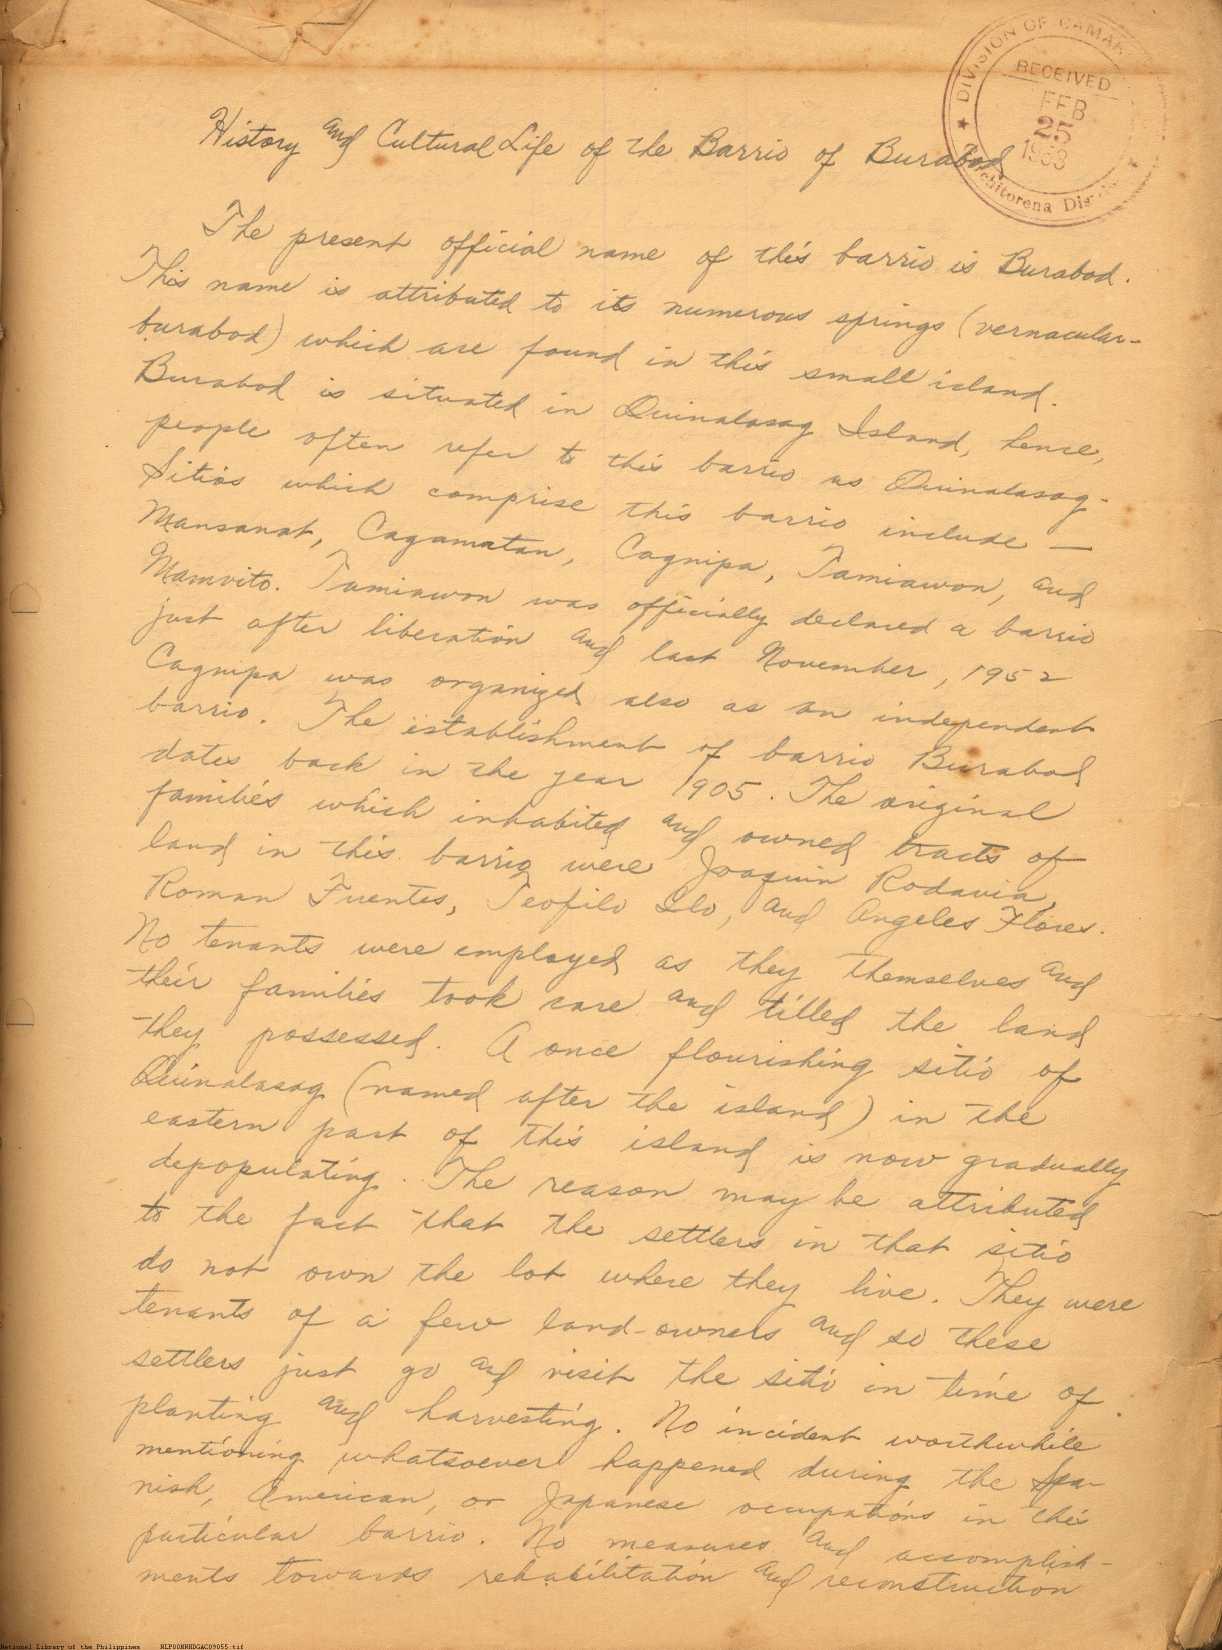 DIVISION OF CAMAR
RECEIVED
FEB
25
1953
History and Cultural Life of the Barrio of Burabod
The present official name of this barrio is Burabod.
This name is attributed to its numerous springs (vernacular-
burabod) which are found in this small island.
Burabod is situated in Quinalasag Island, hence,
people often refer to this barrio as Quinalasag.
Sitios which comprise this barrio include —
Mansanat, Cagamatan, Cagnipa, Tamiawon, and
Mamvito. Tamiawon was officially declared a barrio
just after liberation and last November, 1952
Cagnipa was organized also as an independent
barrio. The establishment of barrio Burabod
dates back in the year 1905. The original
families which inhabited and owned tracts of
land in this barrio were Joaquin Rodavia,
Roman Fuentes, Teofilo Llo, and Angeles Flores.
No tenants were employed as they themselves and
their families took care and tilled the land
they possessed. A once flourishing sitio of
Quinalasag (named after the island) in the
eastern part of this island is now gradually
depopulating. The reason may be attributed
to the fact that the settlers in that sitio
do not own the lot where they live. They were
tenants of a few land-owners and so these
settlers just go and visit the sitio in time of
planting and harvesting. No incident worthwhile
mentioning whatsoever happened during the Spa-
nish, American, or Japanese occupations in this
particular barrio. No measures and accomplish-
ments towards rehabilitation and reconstruction
National Library of the Philippines NLP00NRHDGAC09055.tif